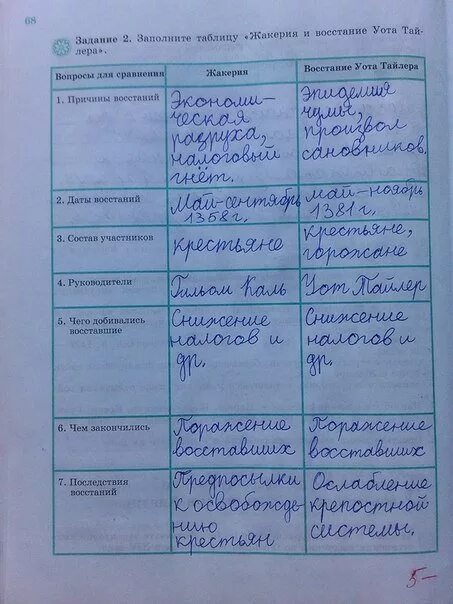 68
Задание 2. Заполните таблицу «Жакерия и восстание Уота Тай-
лера».
Вопросы для сравнения Жакерия Восстание Уота Тайлера
1. Причины восстаний Экономи- Эпидемия
ческая чумы,
разруха, произвол
налоговый сановников.
гнёт.
2. Даты восстаний Май-сентябрь май-ноябрь
1358г. 1381г.
3. Состав участников крестьяне крестьяне,
горожане
4. Руководители Гильом Каль Уот Тайлер
5. Чего добивались Снижение Снижение
восставшие налогов и налогов и
др. др.
6. Чем закончились Поражение Поражение
восставших восставших
7. Последствия Предпосылки Ослабление
восстаний к освобожде- крепостной
нию системы.
крестьян
5-